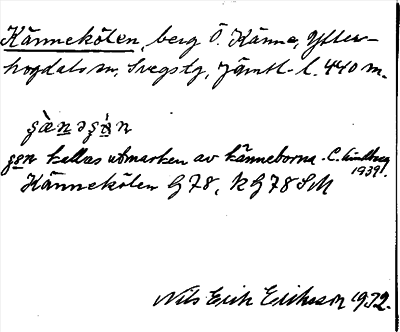 Kännekölen, berg Ö. Känne, Ytter-
hogdals sn, Svegs tg, Jämtl. l. 440 m.
kallas utmarken av känneborna. C. Lindberg
1939.
Kännekölen G78, KG78SM
Nils Erik Eriksson 1932.